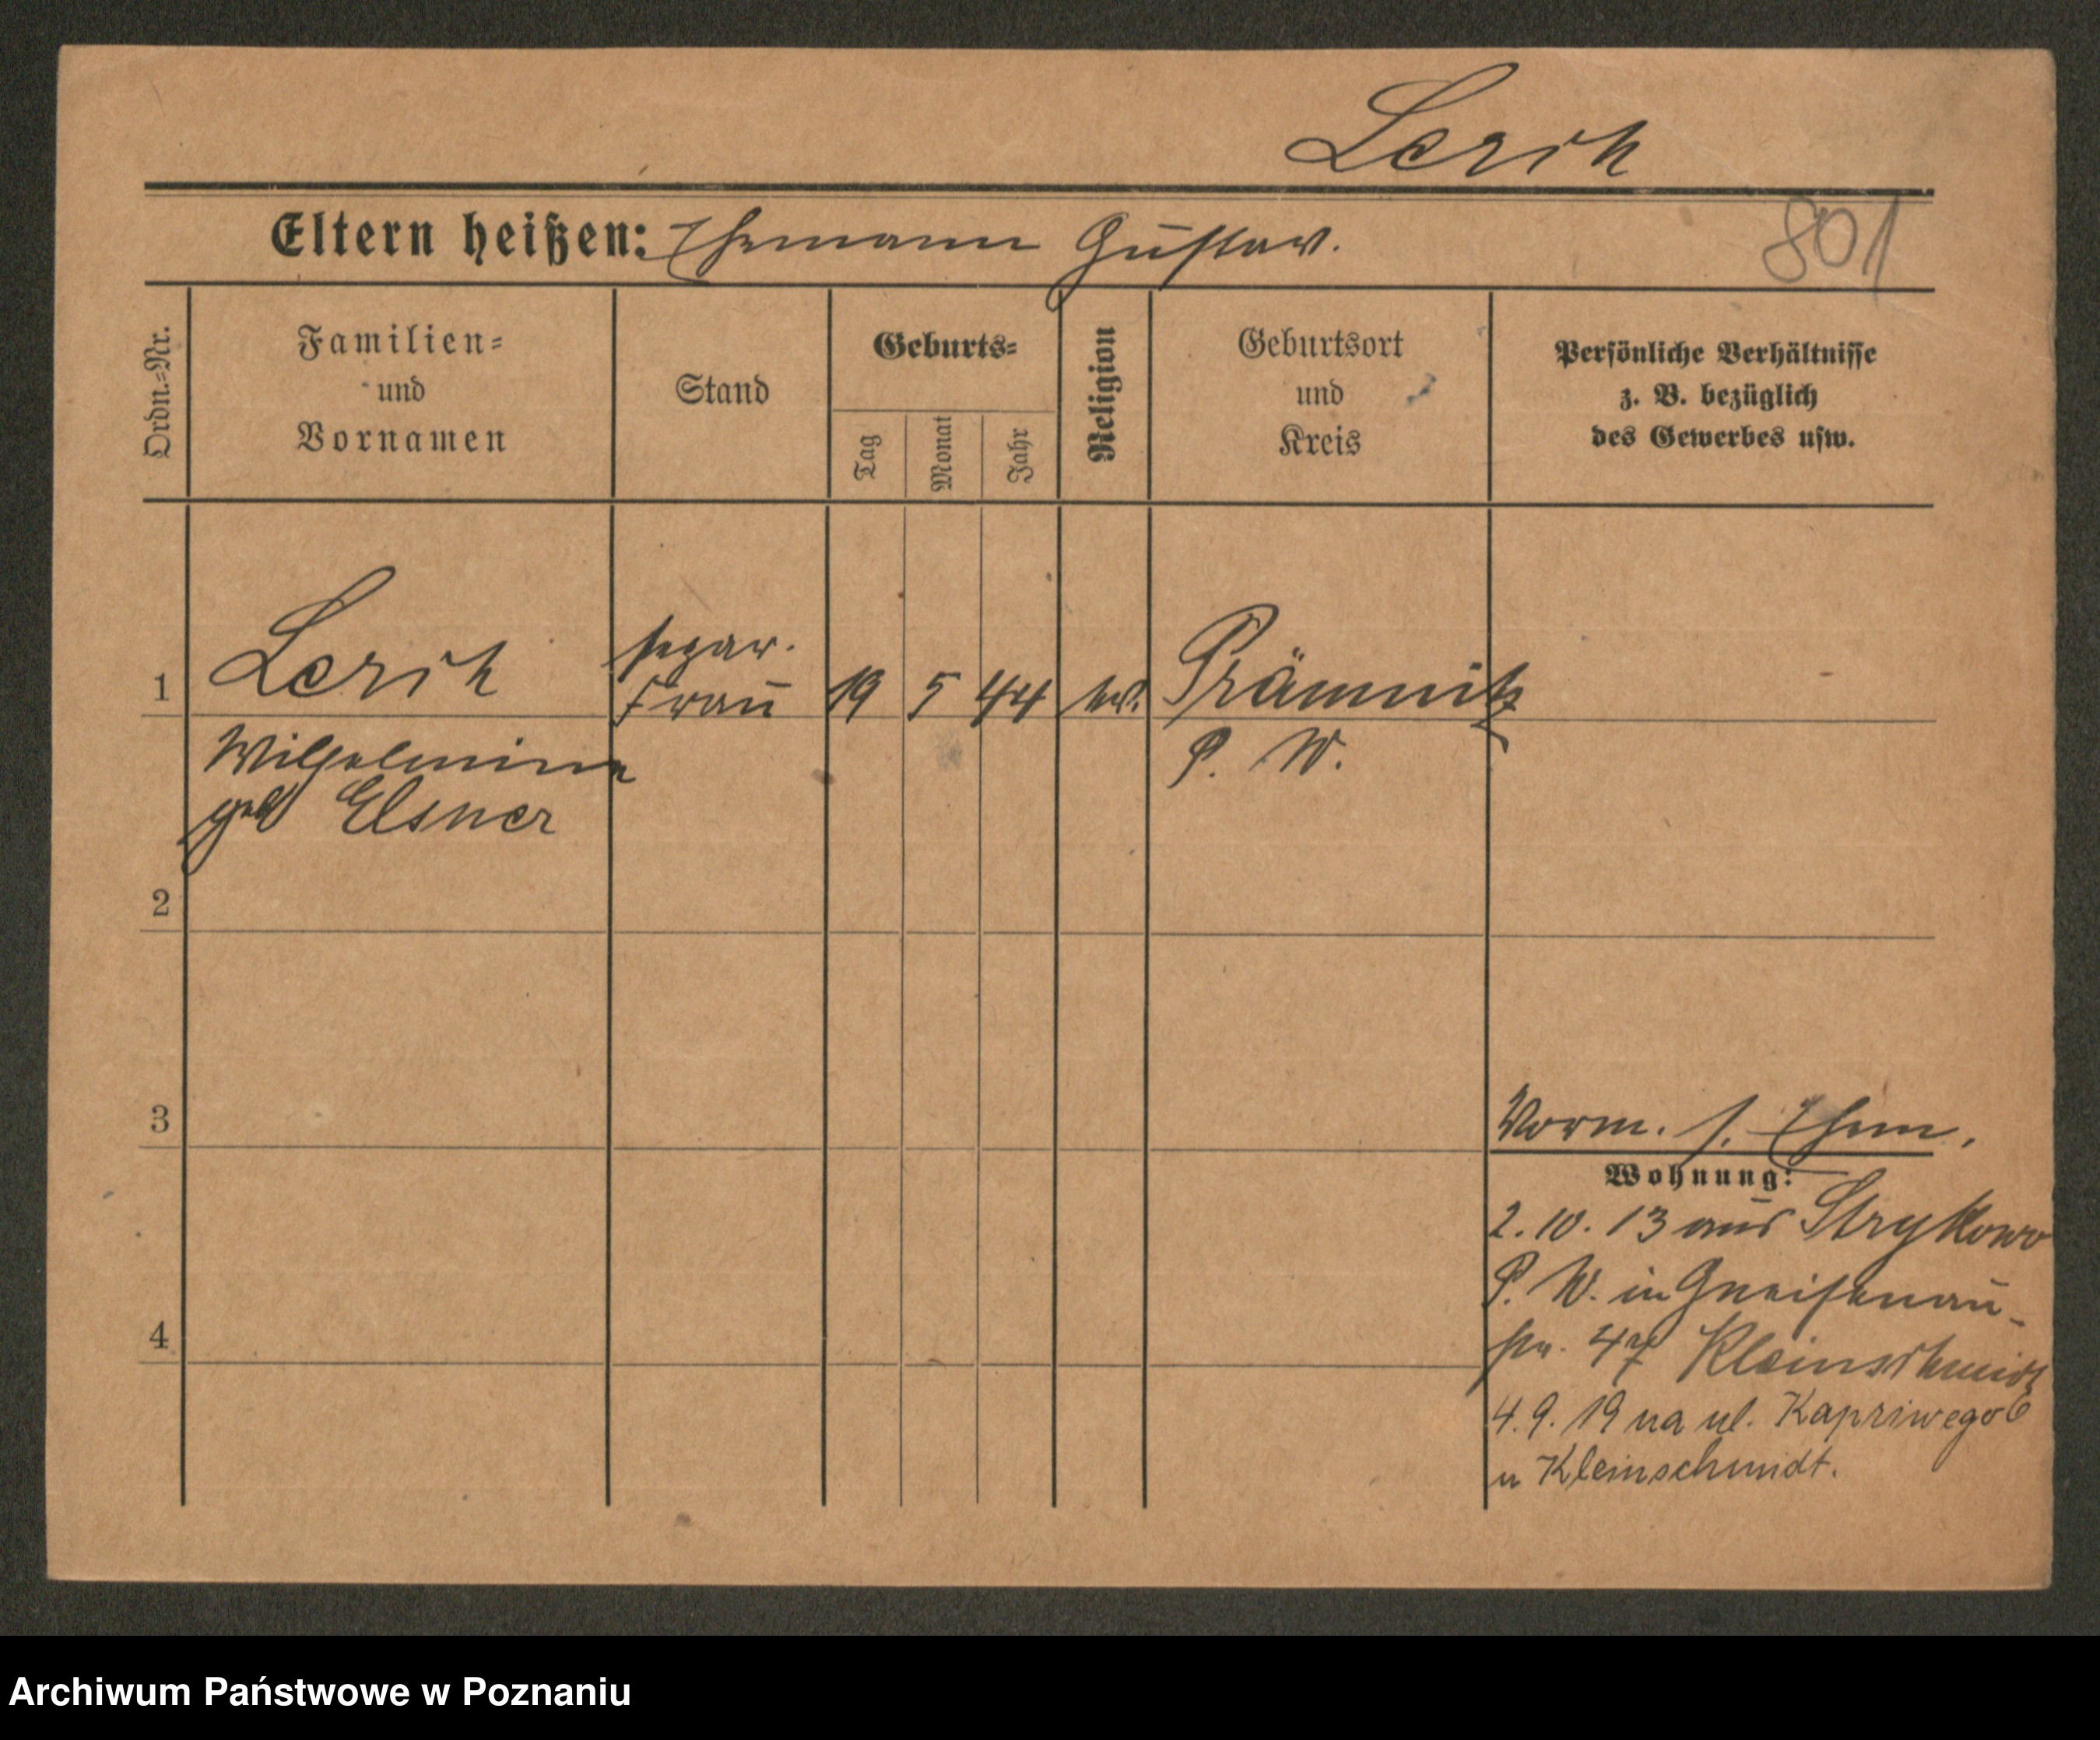 Lersch
Eltern heißen: Ehemann Gustav.
801
Ordn.=Nr.
Familien=
und
Vornamen
Stand
Geburts=
Tag
Monat
Jahr
Religion
Geburtsort
und
Kreis
Persönliche Verhältnisse
z. B. bezüglich
des Gewerbes usw.
1 Lersch separ. Frau 19 5 44 Prämnitz
Wilhelmine P. W.
geb Elsner
2
3
Vorm. s. Ehem.
Wohnung:
2. 10. 13 aus Strykowo
P. W. in Gneisenau-
str. 47 Kleinschmidt
4
4. 9. 19 na ul. Kapriwego 6
u Kleinschmidt.
Archiwum Państwowe w Poznaniu